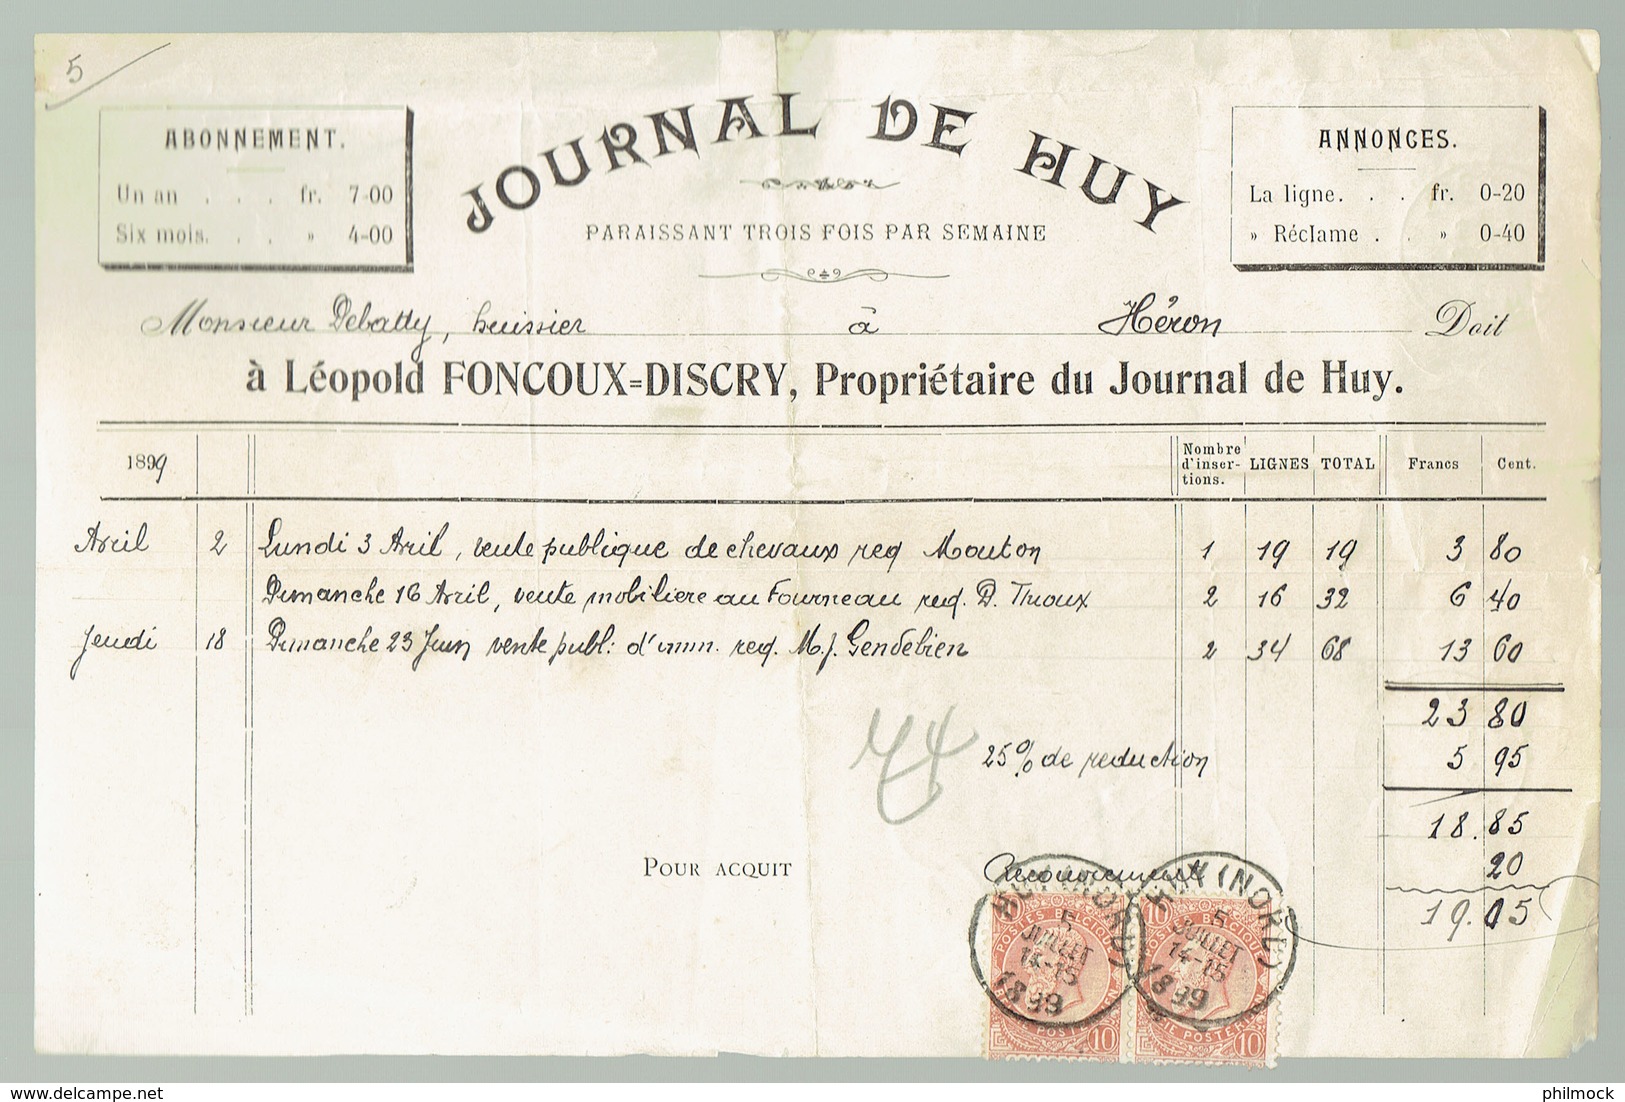 5
JOURNAL DE HUY
PARAISSANT TROIS FOIS PAR SEMAINE
ABONNEMENT.
Un an . . . fr. 7-00
Six mois. . . » 4-00
ANNONCES.
La ligne. . . fr. 0-20
» Réclame . . » 0-40
Monsieur Debatty, huissier à Héron Doit
à Léopold FONCOUX=DISCRY, Propriétaire du Journal de Huy.
1899 Nombre d'inser- tions. LIGNES TOTAL Francs Cent.
Avril 2 Lundi 3 Avril, vente publique de chevaux req Mouton 1 19 19 3 80
Dimanche 16 Avril, vente mobiliere au Fourneau req. D. Thoux 2 16 32 6 40
Jeudi 18 Dimanche 23 Juin vente publ: d'imm. req. M.J. Gendebien 2 34 68 13 60
23 80
25% de reduction 5 95
18.85
POUR ACQUIT Recouvrement 20
19.05
HUY (NORD)
5
JUILLET
14-15
1899
HUY (NORD)
5
JUILLET
14-15
1899
10 POSTES BELGIQUE 10
10 10
philmock
delcampe.net